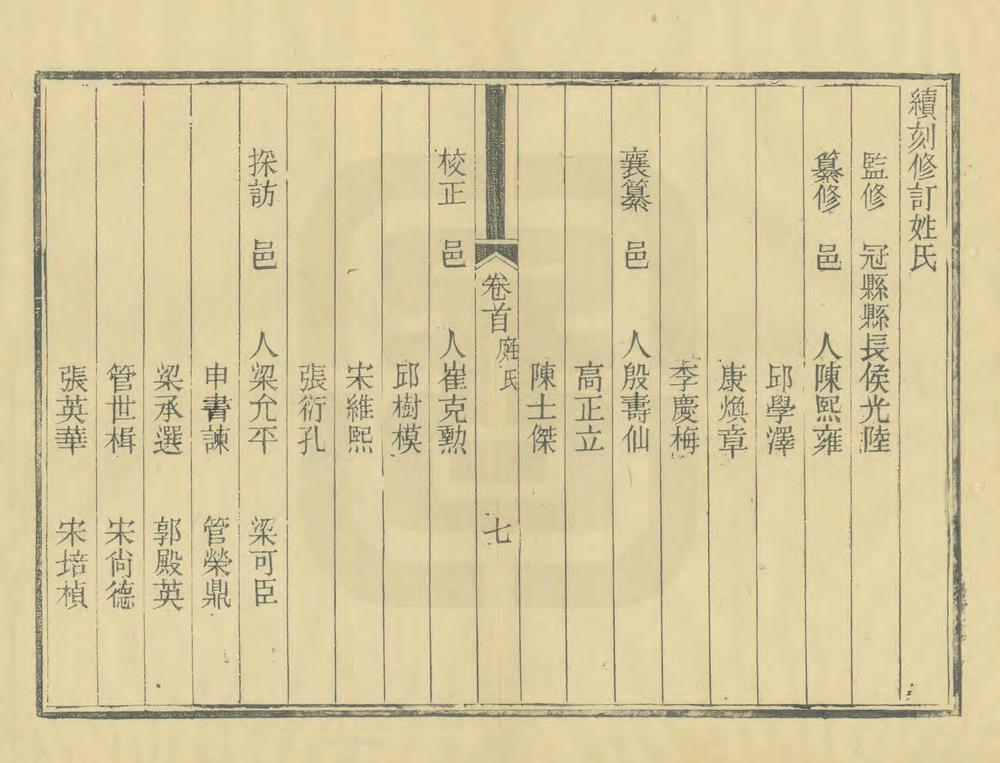 續刻修訂姓氏
監修　冠縣縣長侯光陸
纂修　邑　人陳熙雍
邱學澤
康煥章
李慶梅
襄纂　邑　人殷壽仙
高正立
陳士傑
卷首　姓氏　七
校正　邑　人崔克勲
邱樹模
宋維熙
張衍孔
採訪　邑　人梁允平　梁可臣
申書諫　管榮鼎
梁承選　郭殿英
管世楫　宋尙德
張英華　宋培楨